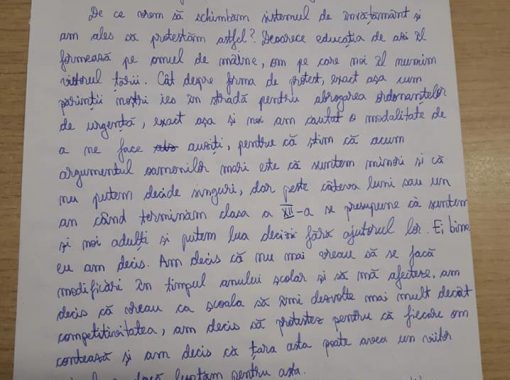 De ce vrem să schimbăm sistemul de învățământ și
am ales să protestăm astfel? Deoarece educația de azi îl
formează pe omul de mâine, om pe care noi îl numim
viitorul țării. Cât despre forma de protest, exact așa cum
părinții noștri ies în stradă pentru abrogarea ordonanțelor
de urgență, exact așa și noi am căutat o modalitate de
a ne face auziți, pentru că știm că acum
argumentul oamenilor mari este că suntem minori și că
nu putem decide singuri, dar peste câteva luni sau un
an când terminăm clasa a XII-a se presupune că suntem
și noi adulți și putem lua decizii fără ajutorul lor. Ei bine
eu am decis. Am decis că nu mai vreau să se facă
modificări în timpul anului școlar și să mă afecteze, am
decis că vreau ca școala să îmi dezvolte mai mult decât
competitivitatea, am decis să protestez pentru că fiecare om
contează și am decis că țara asta poate avea un viitor
dacă luptăm pentru asta.